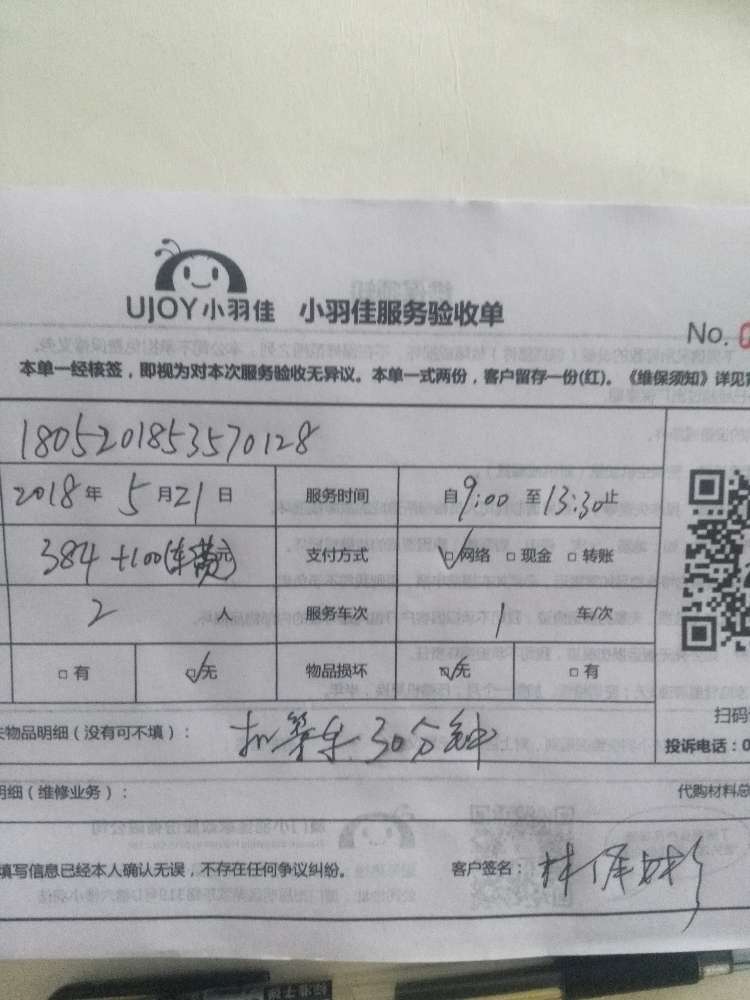 UJOY小羽佳 小羽佳服务验收单
No.
本单一经核签，即视为对本次服务验收无异议。本单一式两份，客户留存一份(红)。《维保须知》详见
1805201853570128
2018年5月21日 服务时间 自9:00至13:30止
384+100(车 元) 支付方式 ☑网络 □现金 □转账
2人 服务车次 1车/次
□有 ☑无 物品损坏 ☑无 □有
扫码
物品明细（没有可不填）： 30分钟
投诉电话：0
明细（维修业务）： 代购材料总
填写信息已经本人确认无误，不存在任何争议纠纷。 客户签名：林